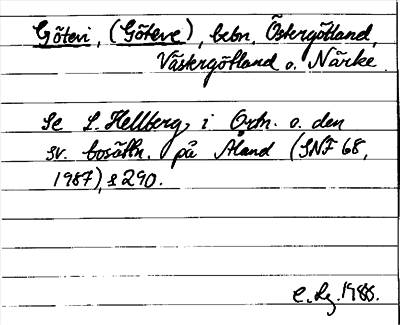 Götevi, (Göteve), bebn. Östergötland,
Västergötland o. Närke.
Se L. Hellberg, i Ortn. o. den
sv. bosättn. på Åland (SNF 68,
1987), s 290.
C. Lg. 1988.